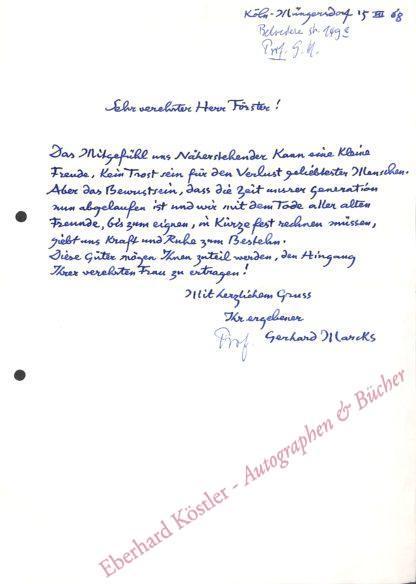 Köln-Müngersdorf 15 XII 68
Belvedere str. 149 c
Prof. G. M.
Sehr verehrter Herr Förster!
Das Mitgefühl uns Näherstehender kann eine kleine
Freude, kein Trost sein für den Verlust geliebtester Menschen.
Aber das Bewustsein, dass die Zeit unsrer Generation
nun abgelaufen ist und wir mit dem Tode aller alten
Freunde, bis zum eignen, in Kürze fest rechnen müssen,
giebt uns Kraft und Ruhe zum Bestehn.
Diese Güter mögen Ihnen zuteil werden, den Hingang
Ihrer verehrten Frau zu ertragen!
Mit herzlichem Gruss
Ihr ergebener
Prof. Gerhard Marcks
Eberhard Köstler - Autographen & Bücher